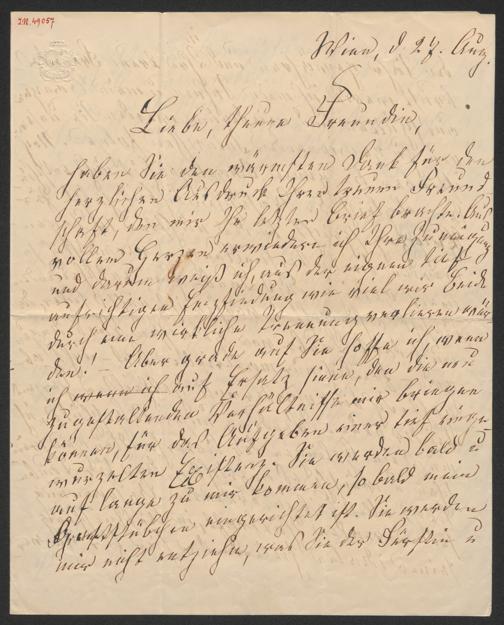 I.N. 49057
Wien, d 27. Aug.
Liebe, theure Freundin,
haben Sie den wärmsten Dank für den
herzlichen Ausdruck Ihrer treuen Freund
schaft, den mir Ihr letzter Brief brachte. Aus
vollem Herzen erwiedere ich Ihre Zuneigung
und darum weiß ich, aus der eignen tief
aufrichtigen Empfindung wie viel wir beide
durch eine wirkliche Trennung verlieren wür
den! – Aber grade auf Sie hoffe ich, wenn
ich wenn ich auf Ersatz sinne, den die neu
zugestaltenden Verhältnisse mir bringen
können, für das Aufgeben einer tief einge-
wurzelten Existenz. Sie werden bald u
auf lange zu mir kommen, so bald mein
eingerichtet ist. Sie werden
mir nicht entziehn, was Sie der Fürstin u